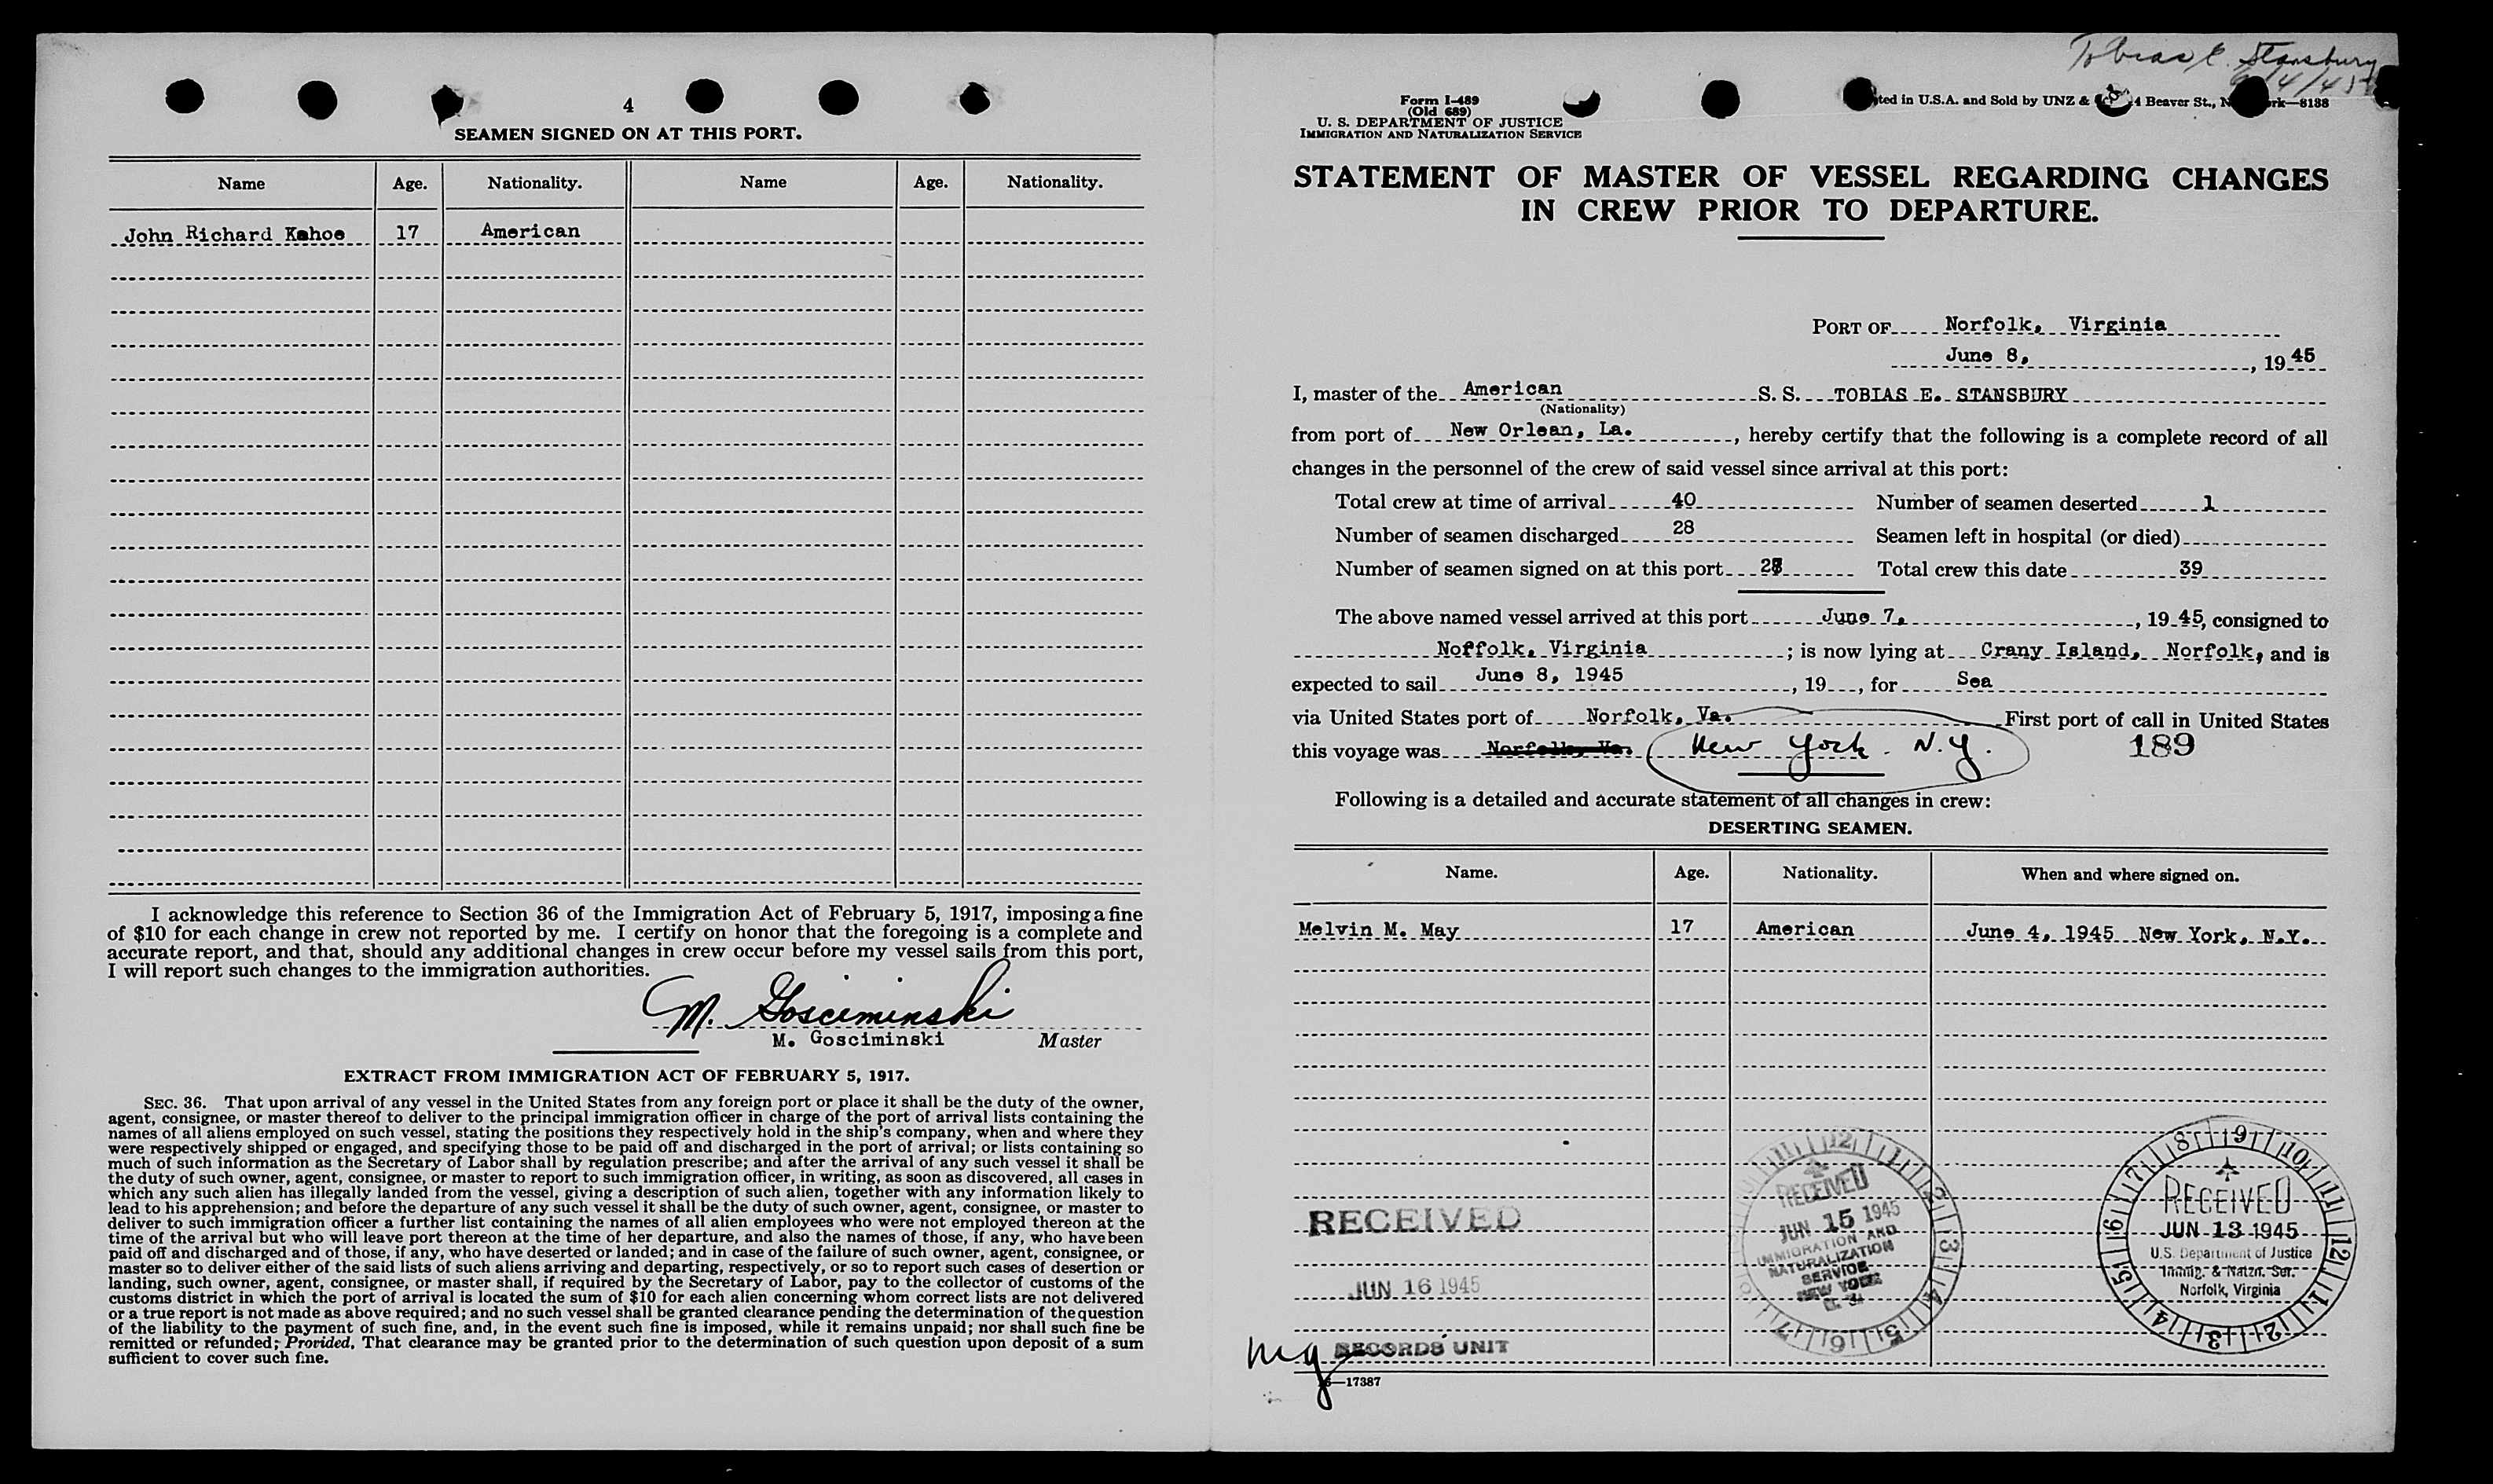 4
SEAMEN SIGNED ON AT THIS PORT.
Name Age. Nationality. Name Age. Nationality.
John Richard Kehoe 17 American
I acknowledge this reference to Section 36 of the Immigration Act of February 5, 1917, imposing a fine
of $10 for each change in crew not reported by me. I certify on honor that the foregoing is a complete and
accurate report, and that, should any additional changes in crew occur before my vessel sails from this port,
I will report such changes to the immigration authorities.
M. Gosciminski
M. Gosciminski Master
EXTRACT FROM IMMIGRATION ACT OF FEBRUARY 5, 1917.
SEC. 36. That upon arrival of any vessel in the United States from any foreign port or place it shall be the duty of the owner,
agent, consignee, or master thereof to deliver to the principal immigration officer in charge of the port of arrival lists containing the
names of all aliens employed on such vessel, stating the positions they respectively hold in the ship's company, when and where they
were respectively shipped or engaged, and specifying those to be paid off and discharged in the port of arrival; or lists containing so
much of such information as the Secretary of Labor shall by regulation prescribe; and after the arrival of any such vessel it shall be
the duty of such owner, agent, consignee, or master to report to such immigration officer, in writing, as soon as discovered, all cases in
which any such alien has illegally landed from the vessel, giving a description of such alien, together with any information likely to
lead to his apprehension; and before the departure of any such vessel it shall be the duty of such owner, agent, consignee, or master to
deliver to such immigration officer a further list containing the names of all alien employees who were not employed thereon at the
time of the arrival but who will leave port thereon at the time of her departure, and also the names of those, if any, who have been
paid off and discharged and of those, if any, who have deserted or landed; and in case of the failure of such owner, agent, consignee, or
master so to deliver either of the said lists of such aliens arriving and departing, respectively, or so to report such cases of desertion or
landing, such owner, agent, consignee, or master shall, if required by the Secretary of Labor, pay to the collector of customs of the
customs district in which the port of arrival is located the sum of $10 for each alien concerning whom correct lists are not delivered
or a true report is not made as above required; and no such vessel shall be granted clearance pending the determination of the question
of the liability to the payment of such fine, and, in the event such fine is imposed, while it remains unpaid; nor shall such fine be
remitted or refunded; Provided, That clearance may be granted prior to the determination of such question upon deposit of a sum
sufficient to cover such fine.
Tobias E. Stansbury
6/4/45
Form I-489
(Old 689)
U. S. DEPARTMENT OF JUSTICE
IMMIGRATION AND NATURALIZATION SERVICE
ted in U.S.A. and Sold by UNZ & 4 Beaver St., N rk—8188
STATEMENT OF MASTER OF VESSEL REGARDING CHANGES
IN CREW PRIOR TO DEPARTURE.
PORT OF Norfolk, Virginia
June 8, , 19 45
I, master of the American S. S. TOBIAS E. STANSBURY
(Nationality)
from port of New Orlean, La. , hereby certify that the following is a complete record of all
changes in the personnel of the crew of said vessel since arrival at this port:
Total crew at time of arrival 40 Number of seamen deserted 1
Number of seamen discharged 28 Seamen left in hospital (or died)
Number of seamen signed on at this port 28 Total crew this date 39
The above named vessel arrived at this port June 7, , 19 45, consigned to
Noffolk, Virginia ; is now lying at Crany Island, Norfolk, and is
expected to sail June 8, 1945 , 19 , for Sea
via United States port of Norfolk, Va. First port of call in United States
this voyage was Norfolk, Va. New York. N.Y. 189
Following is a detailed and accurate statement of all changes in crew:
DESERTING SEAMEN.
Name. Age. Nationality. When and where signed on.
Melvin M. May 17 American June 4, 1945 New York, N.Y.
RECEIVED
JUN 16 1945
RECORDS UNIT
mg
16—17387
11 12 1 2 3 4 5 6 7
RECEIVED
JUN 15 1945
IMMIGRATION AND
NATURALIZATION
SERVICE
NEW YORK
8 9 10 11 12 1 2 3 4 5 6 7
RECEIVED
JUN 13 1945
U.S. Department of Justice
Immig. & Natzn. Ser.
Norfolk, Virginia